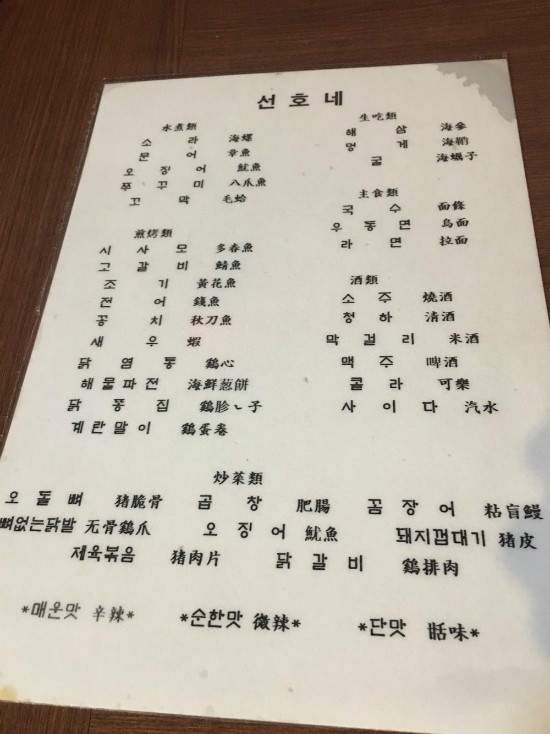 선호네
水煮類
소라 海螺
문어 章魚
오징어 魷魚
쭈꾸미 八爪魚
꼬막 毛蛤
生吃類
해삼 海參
멍게 海鞘
굴 海蠣子
主食類
국수 面條
우동면 烏面
라면 拉面
煎烤類
시사모 多春魚
고갈비 鯖魚
조기 黃花魚
전어 錢魚
꽁치 秋刀魚
새우 蝦
닭염통 鷄心
해물파전 海鮮葱餅
닭똥집 鷄胗子
계란말이 鷄蛋卷
酒類
소주 燒酒
청하 清酒
막걸리 米酒
맥주 啤酒
콜라 可樂
사이다 汽水
炒菜類
오돌뼈 猪脆骨 곱창 肥腸 꼼장어 粘盲鰻
뼈없는닭발 无骨鷄爪 오징어 魷魚 돼지껍대기 猪皮
제육볶음 猪肉片 닭갈비 鷄排肉
*매운맛 辛辣* *순한맛 微辣* *단맛 甛味*